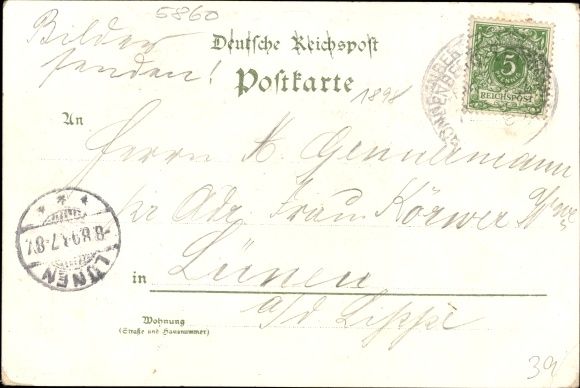 5860
Bilder
senden!
Deutsche Reichspost
Postkarte
5
REICHSPOST
1898
An
Herrn A. Gennemann
pr Adr. Frau Körwer Wwe
LÜNEN
in Lünen
a/d Lippe
Wohnung
(Straße und Hausnummer)
39